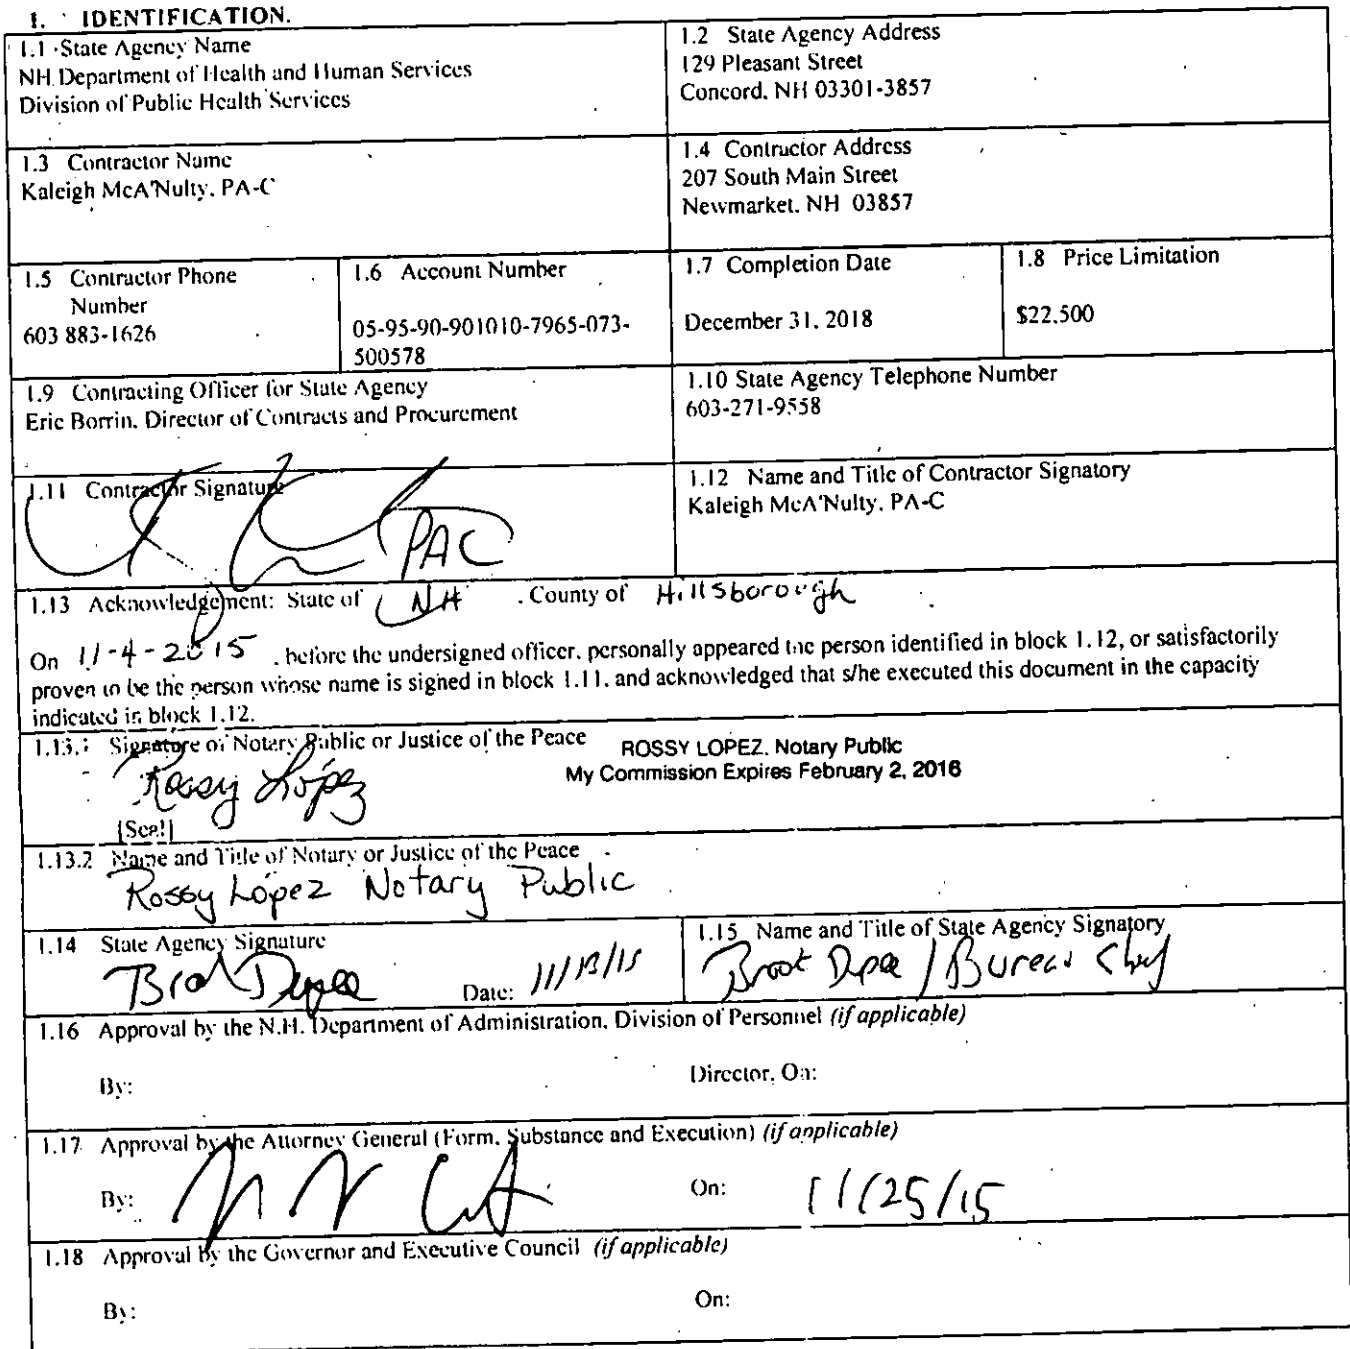 1. IDENTIFICATION.
1.1 State Agency Name
NH Department of Health and Human Services
Division of Public Health Services
1.2 State Agency Address
129 Pleasant Street
Concord, NH 03301-3857
1.3 Contractor Name
Kaleigh McA'Nulty, PA-C
1.4 Contractor Address
207 South Main Street
Newmarket, NH 03857
1.5 Contractor Phone
Number
603 883-1626
1.6 Account Number
05-95-90-901010-7965-073-
500578
1.7 Completion Date
December 31, 2018
1.8 Price Limitation
$22,500
1.9 Contracting Officer for State Agency
Eric Borrin, Director of Contracts and Procurement
1.10 State Agency Telephone Number
603-271-9558
1.11 Contractor Signature
PAC
1.12 Name and Title of Contractor Signatory
Kaleigh McA'Nulty, PA-C
1.13 Acknowledgement: State of NH , County of Hillsborough
On 11-4-2015 , before the undersigned officer, personally appeared the person identified in block 1.12, or satisfactorily
proven to be the person whose name is signed in block 1.11, and acknowledged that s/he executed this document in the capacity
indicated in block 1.12.
1.13.1 Signature of Notary Public or Justice of the Peace
ROSSY LOPEZ, Notary Public
My Commission Expires February 2, 2016
Rossy López
[Seal]
1.13.2 Name and Title of Notary or Justice of the Peace
Rossy López Notary Public
1.14 State Agency Signature
Date: 11/13/15
1.15 Name and Title of State Agency Signatory
Brook Dupee / Bureau Chief
1.16 Approval by the N.H. Department of Administration, Division of Personnel (if applicable)
By: Director, On:
1.17 Approval by the Attorney General (Form, Substance and Execution) (if applicable)
By: On: 11/25/15
1.18 Approval by the Governor and Executive Council (if applicable)
By: On: